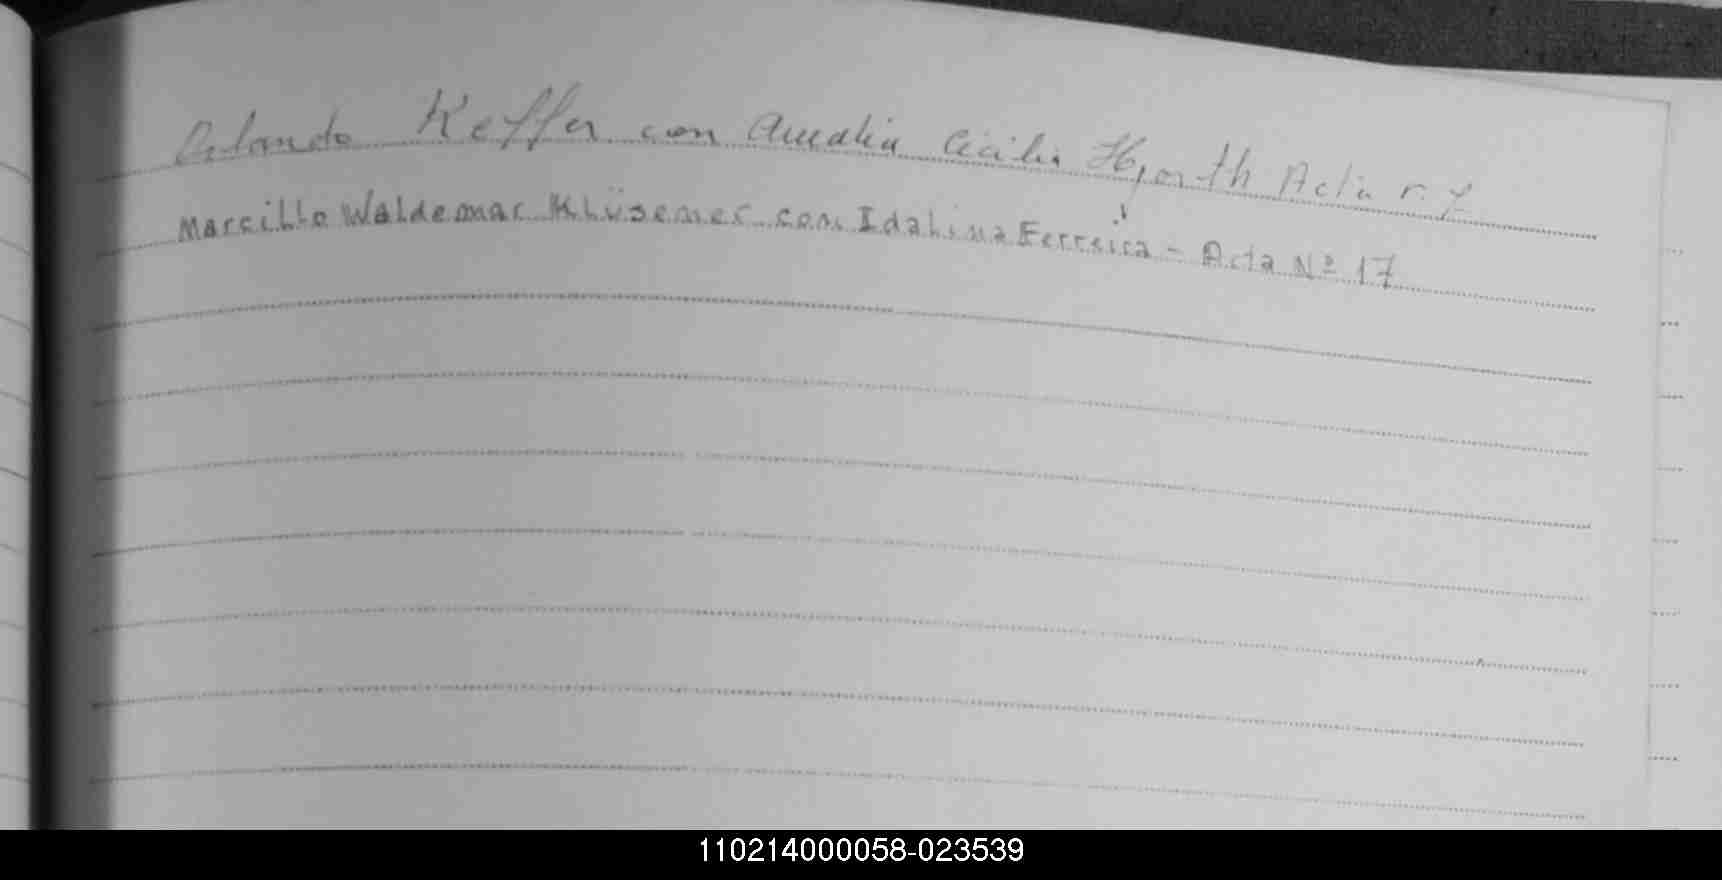 Orlando Keffer con Amalia Cicilia Hjorth Acta n. 7
Marcillo Waldemar Klüsemer con Idalina Ferreira - Acta Nº 17
110214000058-023539